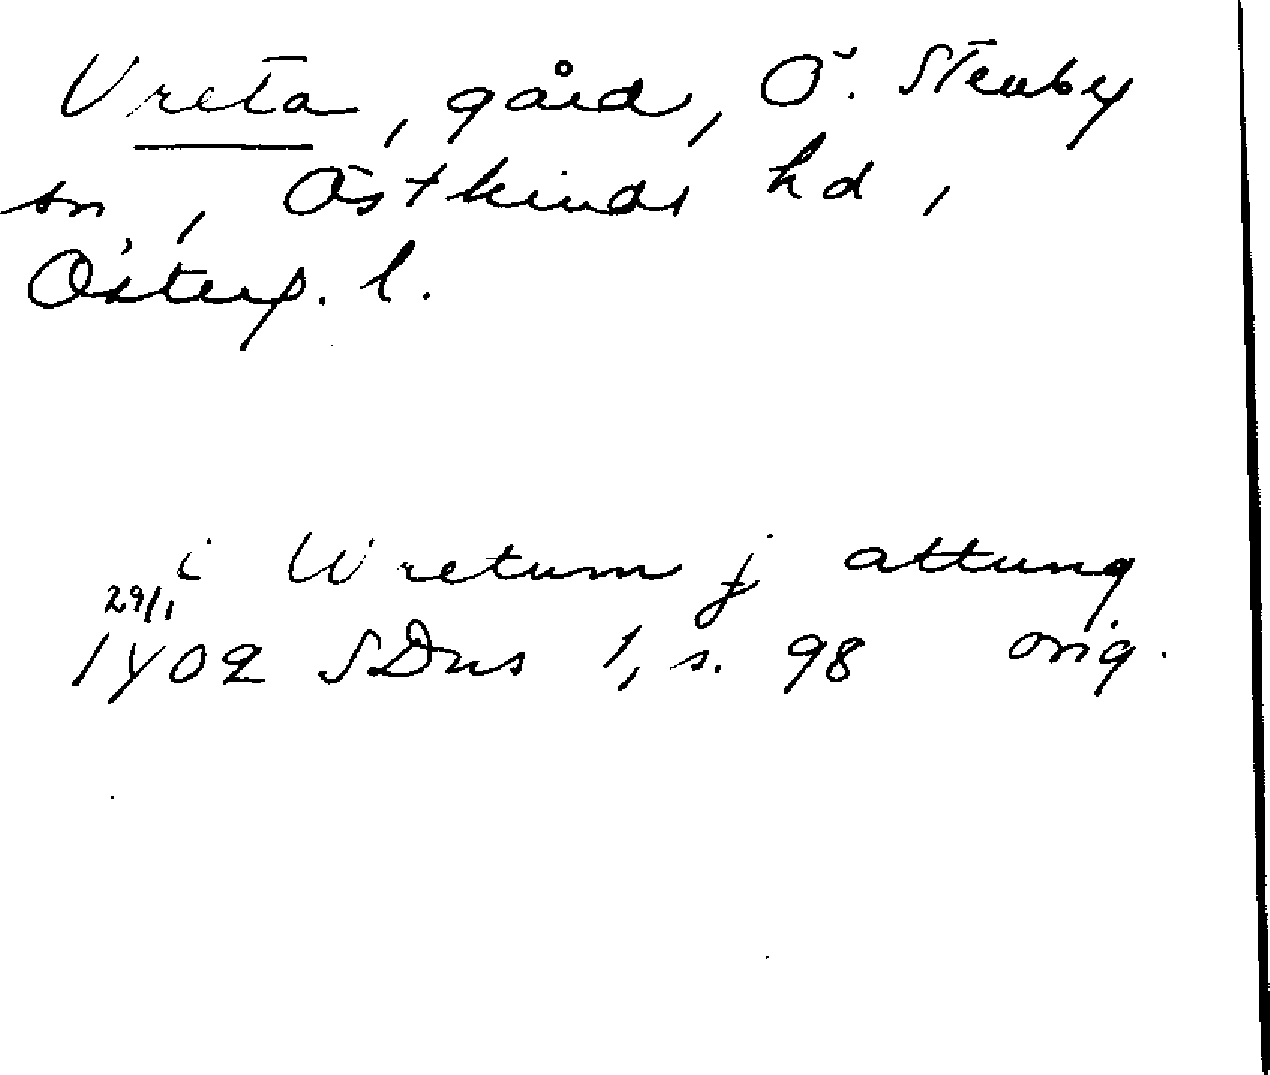 Vreta, gård, Ö. Stenby
sn, Östkinds hd,
Österg. l.
i Wretum j attung
29/1
1402 SDns 1, s. 98 orig.